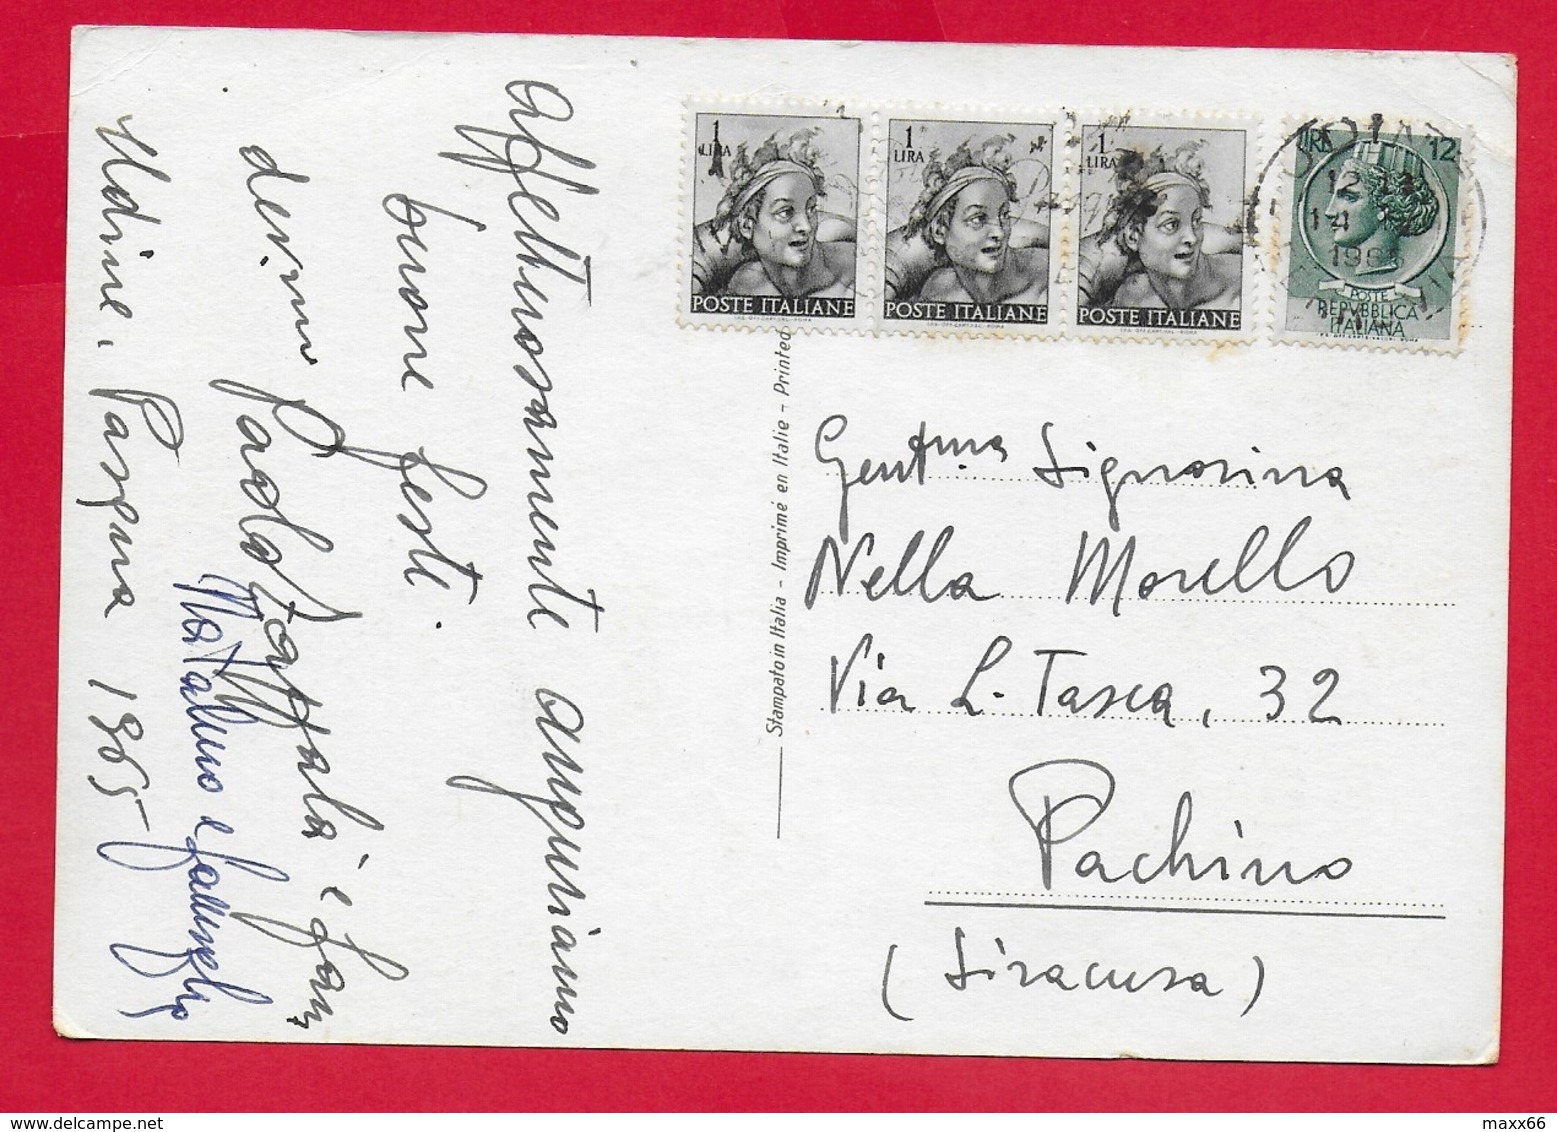 Affettuosamente auguriamo
buone feste.
dev.mi Paolo Zappalà e fam.
Natalino e famiglia
Udine, Pasqua 1965
1 LIRA
POSTE ITALIANE
1 LIRA
POSTE ITALIANE
1 LIRA
POSTE ITALIANE
LIRE 12
POSTE
REPVBBLICA
ITALIANA
12
14
Stampato in Italia - Imprimé en Italie - Printed
Gent.ma Signorina
Nella Morello
Via L. Tasca, 32
Pachino
(Siracusa)
maxx66